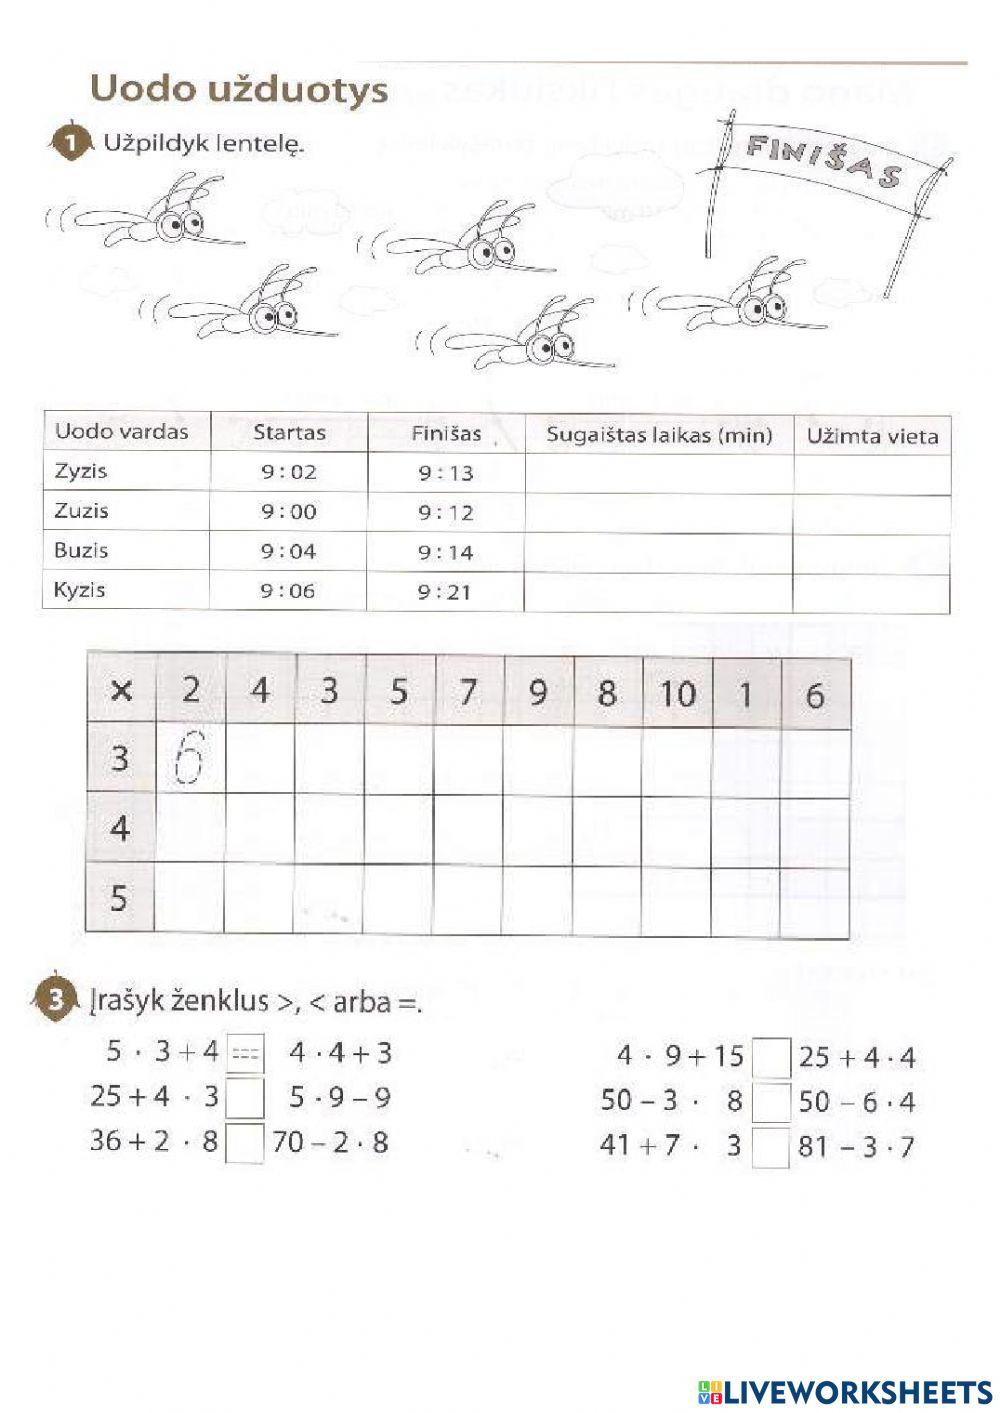 Uodo užduotys
1 Užpildyk lentelę.
FINIŠAS
Uodo vardas Startas Finišas Sugaištas laikas (min) Užimta vieta
Zyzis 9:02 9:13
Zuzis 9:00 9:12
Buzis 9:04 9:14
Kyzis 9:06 9:21
× 2 4 3 5 7 9 8 10 1 6
3 6
4
5
3 Įrašyk ženklus >, < arba =.
5 · 3 + 4 = 4 · 4 + 3
4 · 9 + 15 25 + 4 · 4
25 + 4 · 3 5 · 9 – 9
50 – 3 · 8 50 – 6 · 4
36 + 2 · 8 70 – 2 · 8
41 + 7 · 3 81 – 3 · 7
LIVEWORKSHEETS